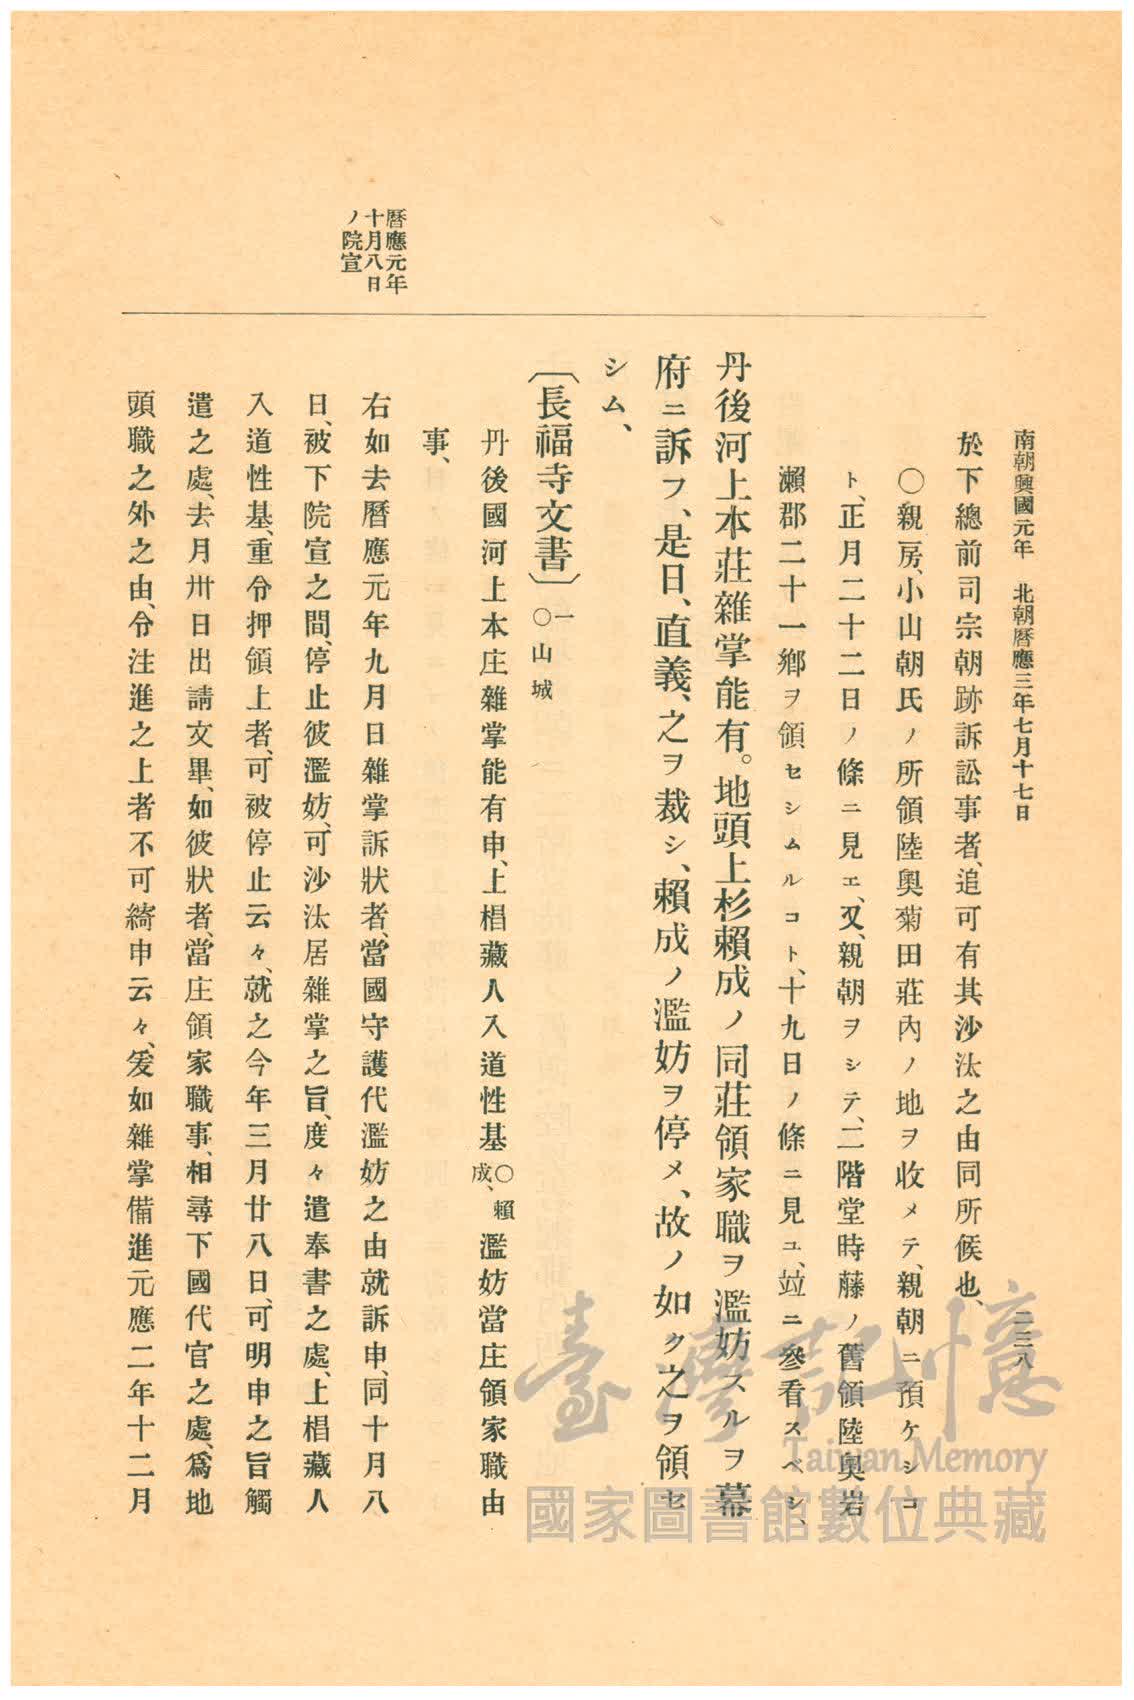 南朝興國元年　北朝曆應三年七月十七日
二三八
於下總前司宗朝跡訴訟事者、追可有其沙汰之由同所候也、
〇親房、小山朝氏ノ所領陸奧菊田莊內ノ地ヲ收メテ、親朝ニ預ケシコ
ト、正月二十二日ノ條ニ見エ、又、親朝ヲシテ、二階堂時藤ノ舊領陸奧岩
瀨郡二十一鄕ヲ領セシムルコト、十九日ノ條ニ見ユ、竝ニ參看スベシ、
丹後河上本莊雜掌能有。地頭上杉賴成ノ同莊領家職ヲ濫妨スルヲ幕
府ニ訴フ、是日、直義、之ヲ裁シ、賴成ノ濫妨ヲ停メ、故ノ如ク之ヲ領セ
シム、
〔長福寺文書〕一〇山城
丹後國河上本庄雜掌能有申、上椙藏人入道性基〇賴成、濫妨當庄領家職由
事、
曆應元年
十月八日
ノ院宣
右如去曆應元年九月日雜掌訴狀者、當國守護代濫妨之由就訴申、同十月八
日、被下院宣之間、停止彼濫妨、可沙汰居雜掌之旨、度々遣奉書之處、上椙藏人
入道性基、重令押領上者、可被停止云々、就之今年三月廿八日、可明申之旨觸
遣之處、去月卅日出請文畢、如彼狀者、當庄領家職事、相尋下國代官之處、爲地
頭職之外之由、令注進之上者不可綺申云々、爰如雜掌備進元應二年十二月
臺灣記憶
Taiwan Memory
國家圖書館數位典藏